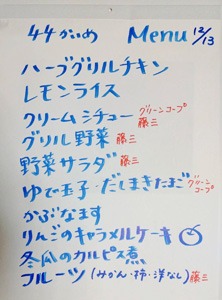 44かいめ Menu 12/13
ハーブグリルチキン
レモンライス
クリームシチュー グリーンコープ 藤三
グリル野菜 藤三
野菜サラダ 藤三
ゆで玉子・だしまきたまご グリーンコープ
かぶなます
りんごのキャラメルケーキ
冬瓜のカルピス煮
フルーツ(みかん・柿・洋なし) 藤三